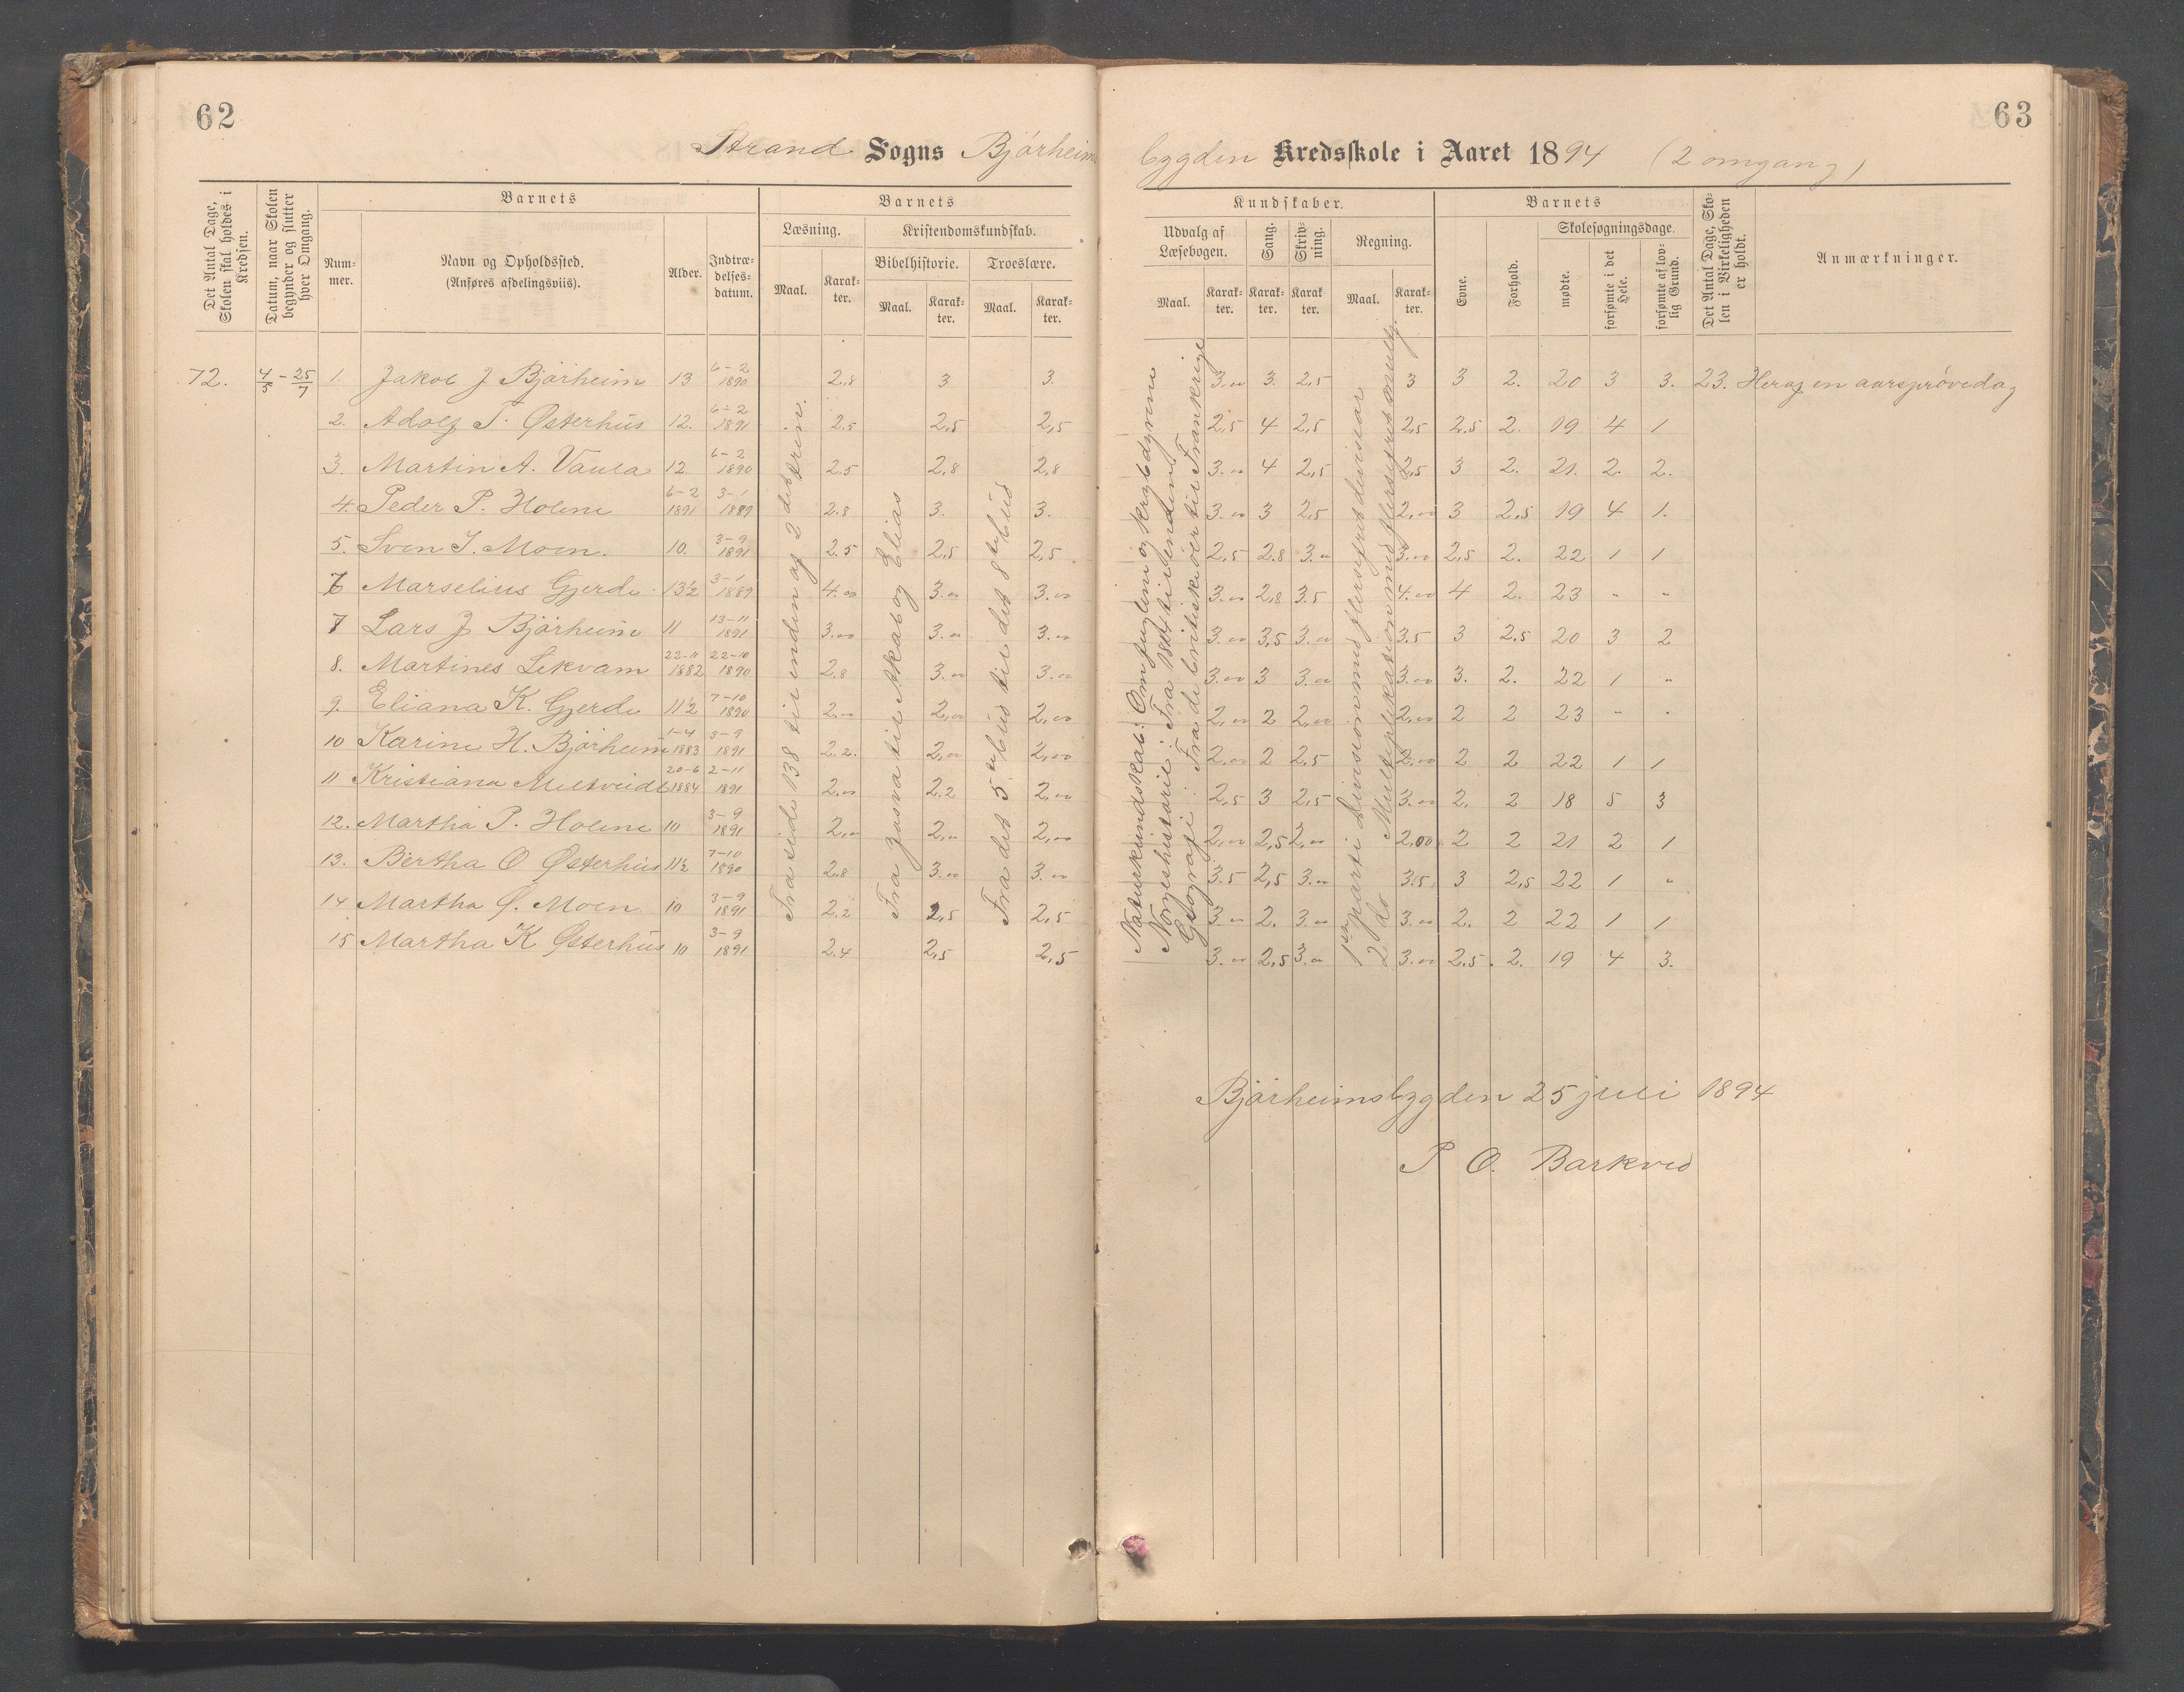 62
Strand Sogns Bjørheims
Det Antal Dage, Skolen skal holdes i Kredsen.
Datum, naar Skolen begynder og slutter hver Omgang.
Barnets
Nummer.
Navn og Opholdssted.
(Anføres afdelingsviis).
Alder.
Indtrædelsesdatum.
Barnets
Læsning.
Maal.
Karakter.
Kristendomskundskab.
Bibelhistorie.
Maal.
Karakter.
Troeslære.
Maal.
Karakter.
72. 4/5 - 25/7 1. Jakob J Bjørheim 13 6-2 1890 2.8 3 3.
2. Adolf T. Østerhus 12. 6-2 1891 2.5 2,5 2,5
3. Martin A. Vaula 12. 6-2 1890 2.5 2,8 2,8
4. Peder P. Holene 6-2 1891 3-1 1889 2.8 3. 3.
5. Sven I. Moen. 10. 3-9 1891 2.5 2,5 2,5
6 Marselius Gjerde 13½ 3-1 1889 4.00 3.00 3.00
7 Lars J Bjørheim 11 13-11 1891 3.00 3.00 3.00
8. Martines Lekvam 22-11 1882 22-10 1890 2.8 3.00 3.00
9. Eliana K. Gjerde 11½ 7-10 1890 2.00 2,00 2,00
10 Karine H. Bjørheim 1-4 1883 3-9 1891 2.2. 2,00 2,00
11 Kristiana Meltveidt 20-6 1884 2-11 1891 2.00 2.2 2,00
12. Martha P. Holene 10 3-9 1891 2,00 2,00 2,00
13. Bertha O Østerhus 11½ 7-10 1890 2.8 3.00 3.00
14 Martha Ø. Moen 10 3-9 1891 2.2 2,5 2,5
15 Martha K Østerhus 10 3-9 1891 2.4 2,5 2,5
Fra side 138 til enden af 2 det trin.
Fra Josva til Akab og Elias
Fra det 5te bud til det 8de bud
63
bygden Kredsskole i Aaret 1894 (2 omgang)
Kundskaber.
Udvalg af Læsebogen.
Maal.
Karakter.
Sang.
Karakter.
Skrivning.
Karakter.
Regning.
Maal.
Karakter.
Barnets
Evne.
Forhold.
Skolesøgningsdage.
mødte.
forsømte i det Hele.
forsømte af lovlig Grund.
Det Antal Dage, Skolen i Virkeligheden er holdt.
Anmærkninger.
3.00 3. 2,5 3 3 2. 20 3 3. 23. Heraf en aarsprøvedag
2,5 4 2,5 2,5 2.5 2. 19 4 1
3.00 4 2,5 2,5 3 2. 21. 2. 2.
3.00 3 2,5 2,00 3 2,5 19 4 1.
2,5 2.8 3.00 3.00 2,5 2. 22 1 1
3.00 2,8 3.5 4.00 4 2. 23 " "
3.00 3,5 3.00 3.5 3 2.5 20 3 2
3.00 3 3.00 3.00 3. 2. 22 1 "
2,00 2 2,00 2,00 2 2 23 " "
2.00 2 2.5 2.00 2 2 22 1 1
2,5 3 2,5 3.00 2. 2 18 5 3
2,00 2,5 2,00 2,00 2 2 21 2 1
3.5 2,5 3.00 3.5 3 2,5 22 1 "
3.00 2. 3.00 3.00 2. 2 22 1 1
3.00 2,5 3.00 3.00 2.5. 2. 19 4 3.
Naturkundskab: Om fuglene og krybdyrene
Norgeshistorie: Fra 1814 til enden.
Geografi: Fra de britiske øer til Frankrige
1ste parti Division med flersifret divisor
2 do Multiplikation med flersifret mulp.
Bjørheimsbygden 25 juli 1894
P O. Barkved